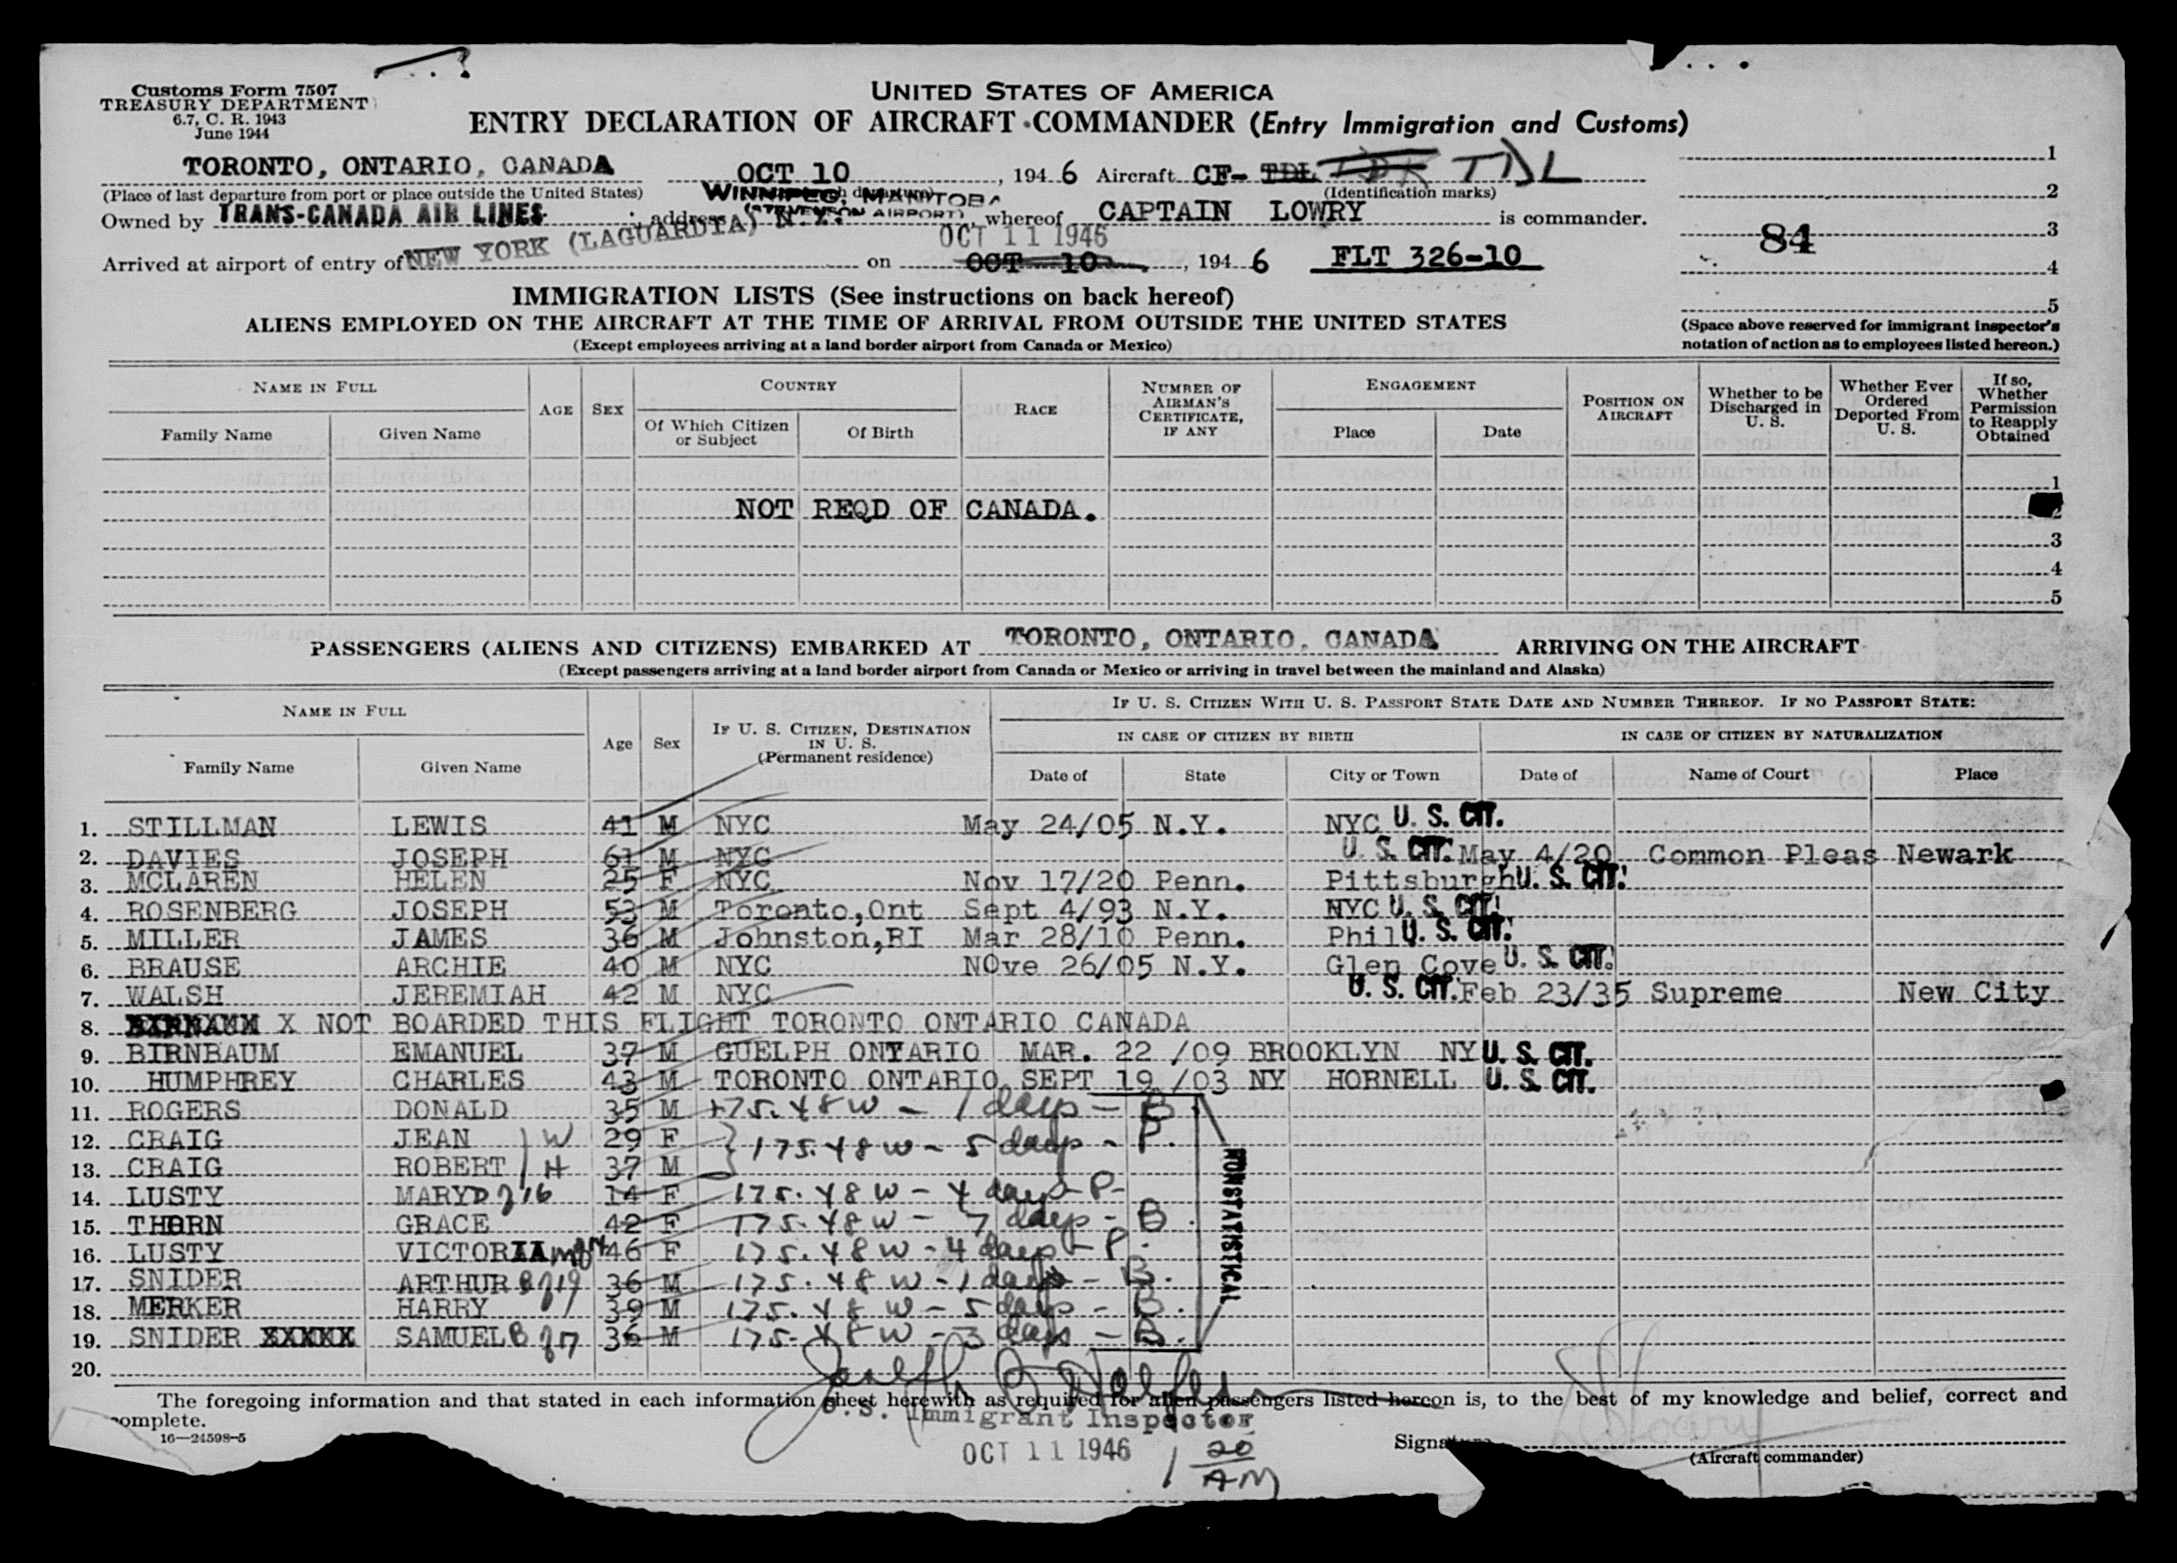 Customs Form 7507
TREASURY DEPARTMENT
6.7, C. R. 1943
June 1944
UNITED STATES OF AMERICA
ENTRY DECLARATION OF AIRCRAFT COMMANDER (Entry Immigration and Customs)
TORONTO, ONTARIO, CANADA OCT 10, 194 6 Aircraft CF- TDL TDL
(Place of last departure from port or place outside the United States) WINNIPEG, MANITOBA (Identification marks)
Owned by TRANS-CANADA AIR LINES ; address (STEVENSON AIRPORT), whereof CAPTAIN LOWRY is commander.
OCT 11 1946
Arrived at airport of entry of NEW YORK (LAGUARDIA) N.Y. on OCT 10, 194 6 FLT 326-10
1
2
3
84
4
5
(Space above reserved for immigrant inspector's
notation of action as to employees listed hereon.)
IMMIGRATION LISTS (See instructions on back hereof)
ALIENS EMPLOYED ON THE AIRCRAFT AT THE TIME OF ARRIVAL FROM OUTSIDE THE UNITED STATES
(Except employees arriving at a land border airport from Canada or Mexico)
NAME IN FULL
Family Name Given Name
AGE SEX
COUNTRY
Of Which Citizen or Subject Of Birth
RACE
NUMBER OF AIRMAN'S CERTIFICATE, IF ANY
ENGAGEMENT
Place Date
POSITION ON AIRCRAFT
Whether to be Discharged in U. S.
Whether Ever Ordered Deported From U. S.
If so, Whether Permission to Reapply Obtained
1
NOT REQD OF CANADA. 2
3
4
5
PASSENGERS (ALIENS AND CITIZENS) EMBARKED AT TORONTO, ONTARIO, CANADA ARRIVING ON THE AIRCRAFT
(Except passengers arriving at a land border airport from Canada or Mexico or arriving in travel between the mainland and Alaska)
NAME IN FULL
Family Name Given Name
Age Sex
IF U. S. CITIZEN, DESTINATION IN U. S.
(Permanent residence)
IF U. S. CITIZEN WITH U. S. PASSPORT STATE DATE AND NUMBER THEREOF. IF NO PASSPORT STATE:
IN CASE OF CITIZEN BY BIRTH IN CASE OF CITIZEN BY NATURALIZATION
Date of State City or Town Date of Name of Court Place
1. STILLMAN LEWIS 41 M NYC May 24/05 N.Y. NYC U. S. CIT.
2. DAVIES JOSEPH 61 M NYC U. S. CIT. May 4/20 Common Pleas Newark
3. MCLAREN HELEN 25 F NYC Nov 17/20 Penn. Pittsburgh U. S. CIT.
4. ROSENBERG JOSEPH 53 M Toronto,Ont Sept 4/93 N.Y. NYC U. S. CIT.
5. MILLER JAMES 36 M Johnston,RI Mar 28/10 Penn. Phil U. S. CIT.
6. BRAUSE ARCHIE 40 M NYC NOve 26/05 N.Y. Glen Cove U. S. CIT.
7. WALSH JEREMIAH 42 M NYC U. S. CIT. Feb 23/35 Supreme New City
8. X NOT BOARDED THIS FLIGHT TORONTO ONTARIO CANADA
9. BIRNBAUM EMANUEL 37 M GUELPH ONTARIO MAR. 22 /09 BROOKLYN NY U. S. CIT.
10. HUMPHREY CHARLES 43 M TORONTO ONTARIO SEPT 19 /03 NY HORNELL U. S. CIT.
11. ROGERS DONALD 35 M 175.48W - 1 days - B
12. CRAIG JEAN W 29 F 175.48W - 5 days - P.
13. CRAIG ROBERT H 37 M
14. LUSTY MARY D 14 F 175.48W - 4 days - P-
15. THORN GRACE 42 F 175.48W - 7 days - B.
16. LUSTY VICTORIA 46 F 175.48W - 4 days - P.
17. SNIDER ARTHUR 36 M 175.48W - 1 days - B.
18. MERKER HARRY 39 M 175.48W - 5 days - B.
19. SNIDER XXXXX SAMUEL 36 M 175.48W - 3 days - B.
20.
NONSTATISTICAL
The foregoing information and that stated in each information sheet herewith as required for alien passengers listed hereon is, to the best of my knowledge and belief, correct and
complete.
16—24598-5
U. S. Immigrant Inspector
OCT 11 1946
1 20 AM
Signature
(Aircraft commander)